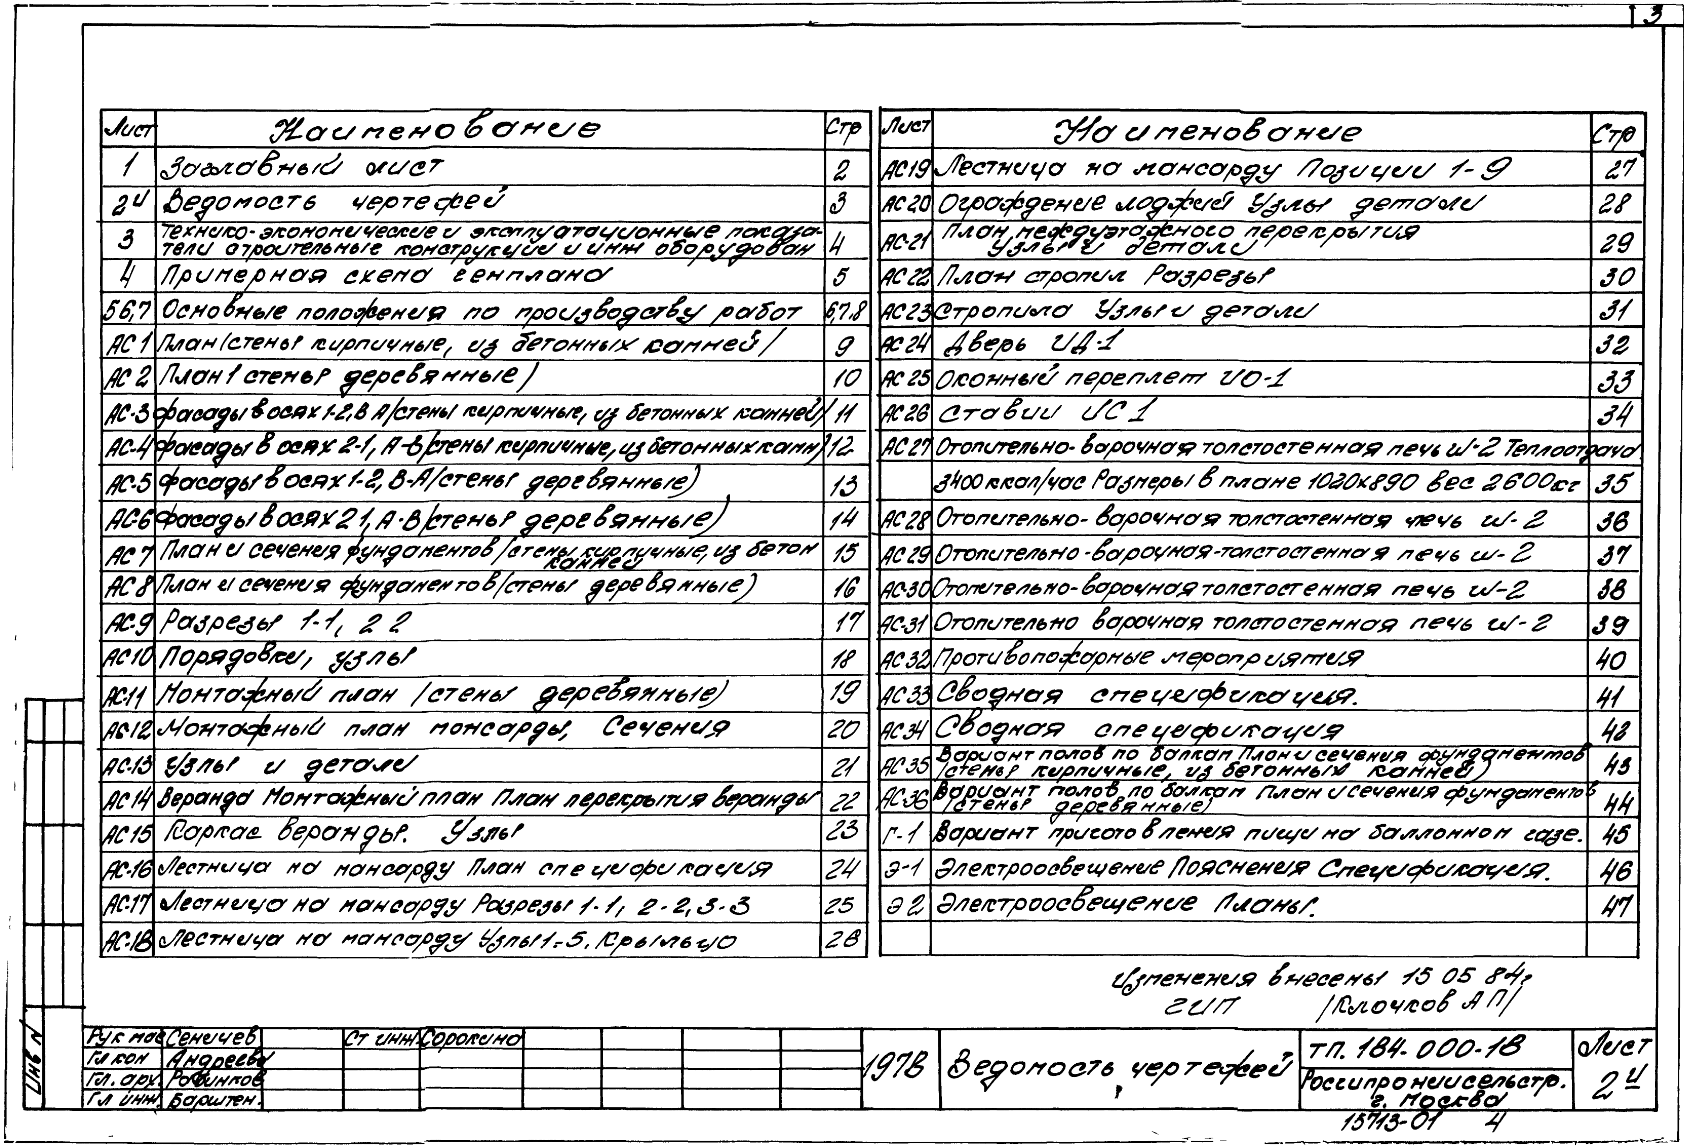 3
Лист Наименование Стр
1 Заглавный лист 2
2и Ведомость чертежей 3
3 Технико-экономические и эксплуатационные показа-
тели строительные конструкции и инж оборудован 4
4 Примерная схема генплана 5
5 6,7 Основные положения по производству работ 6,7,8
АС 1 План (стены кирпичные, из бетонных камней) 9
АС 2 План (стены деревянные) 10
АС-3 Фасады в осях 1-2, В А (стены кирпичные, из бетонных камней) 11
АС-4 Фасады в осях 2-1, А-В (стены кирпичные, из бетонных камн) 12
АС-5 Фасады в осях 1-2, В-А (стены деревянные) 13
АС-6 Фасады в осях 2 1, А-В (стены деревянные) 14
АС 7 План и сечения фундаментов (стены кирпичные, из бетон
камней 15
АС 8 План и сечения фундаментов (стены деревянные) 16
АС-9 Разрезы 1-1, 2 2 17
АС 10 Порядовки, узлы 18
АС-11 Монтажный план (стены деревянные) 19
АС-12 Монтажный план мансарды, Сечения 20
АС-13 Узлы и детали 21
АС 14 Веранда Монтажный план План перекрытия веранды 22
АС 15 Каркас веранды. Узлы 23
АС-16 Лестница на мансарду План спецификация 24
АС-17 Лестница на мансарду Разрезы 1-1, 2-2, 3-3 25
АС-18 Лестница на мансарду Узлы 1-5. Крыльцо 26
Лист Наименование Стр
АС 19 Лестница на мансарду Позиции 1-9 27
АС 20 Ограждение лоджий Узлы детали 28
АС-21 План междуэтажного перекрытия
Узлы и детали 29
АС 22 План стропил Разрезы 30
АС 23 Стропила Узлы и детали 31
АС 24 Дверь ИД-1 32
АС 25 Оконный переплет ИО-1 33
АС 26 Ставни ИС 1 34
АС 27 Отопительно-варочная толстостенная печь Ш-2 Теплоотдача
3400 ккал/час Размеры в плане 1020х890 вес 2600кг 35
АС 28 Отопительно-варочная толстостенная печь Ш-2 36
АС 29 Отопительно-варочная-толстостенная печь Ш-2 37
АС-30 Отопительно-варочная толстостенная печь Ш-2 38
АС-31 Отопительно варочная толстостенная печь Ш-2 39
АС 32 Противопожарные мероприятия 40
АС 33 Сводная спецификация. 41
АС 34 Сводная спецификация 42
АС 35 Вариант полов по балкам План и сечения фундаментов
(стены кирпичные, из бетонных камней) 43
АС-36 Вариант полов по балкам План и сечения фундаментов
(стены деревянные) 44
Г-1 Вариант приготовления пищи на баллонном газе. 45
Э-1 Электроосвещение Пояснения Спецификация. 46
Э 2 Электроосвещение Планы. 47
Изменения внесены 15 05 84г
ГИП /Клочков А П/
Рук мас Сеничев Ст инж Сорокина
Гл кон Андреева
Гл. арх. Рабинков
Гл инж. Барштен.
Инв N
1978 Ведомость чертежей
ТП. 184-000-18
Росгипрониисельстр.
г. Москва
Лист
2и
15713-01 4